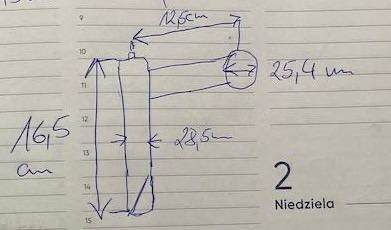 9
12,5cm
10
25,4 cm
11
16,5
cm
12
13
28,5cm
14
2
Niedziela
15